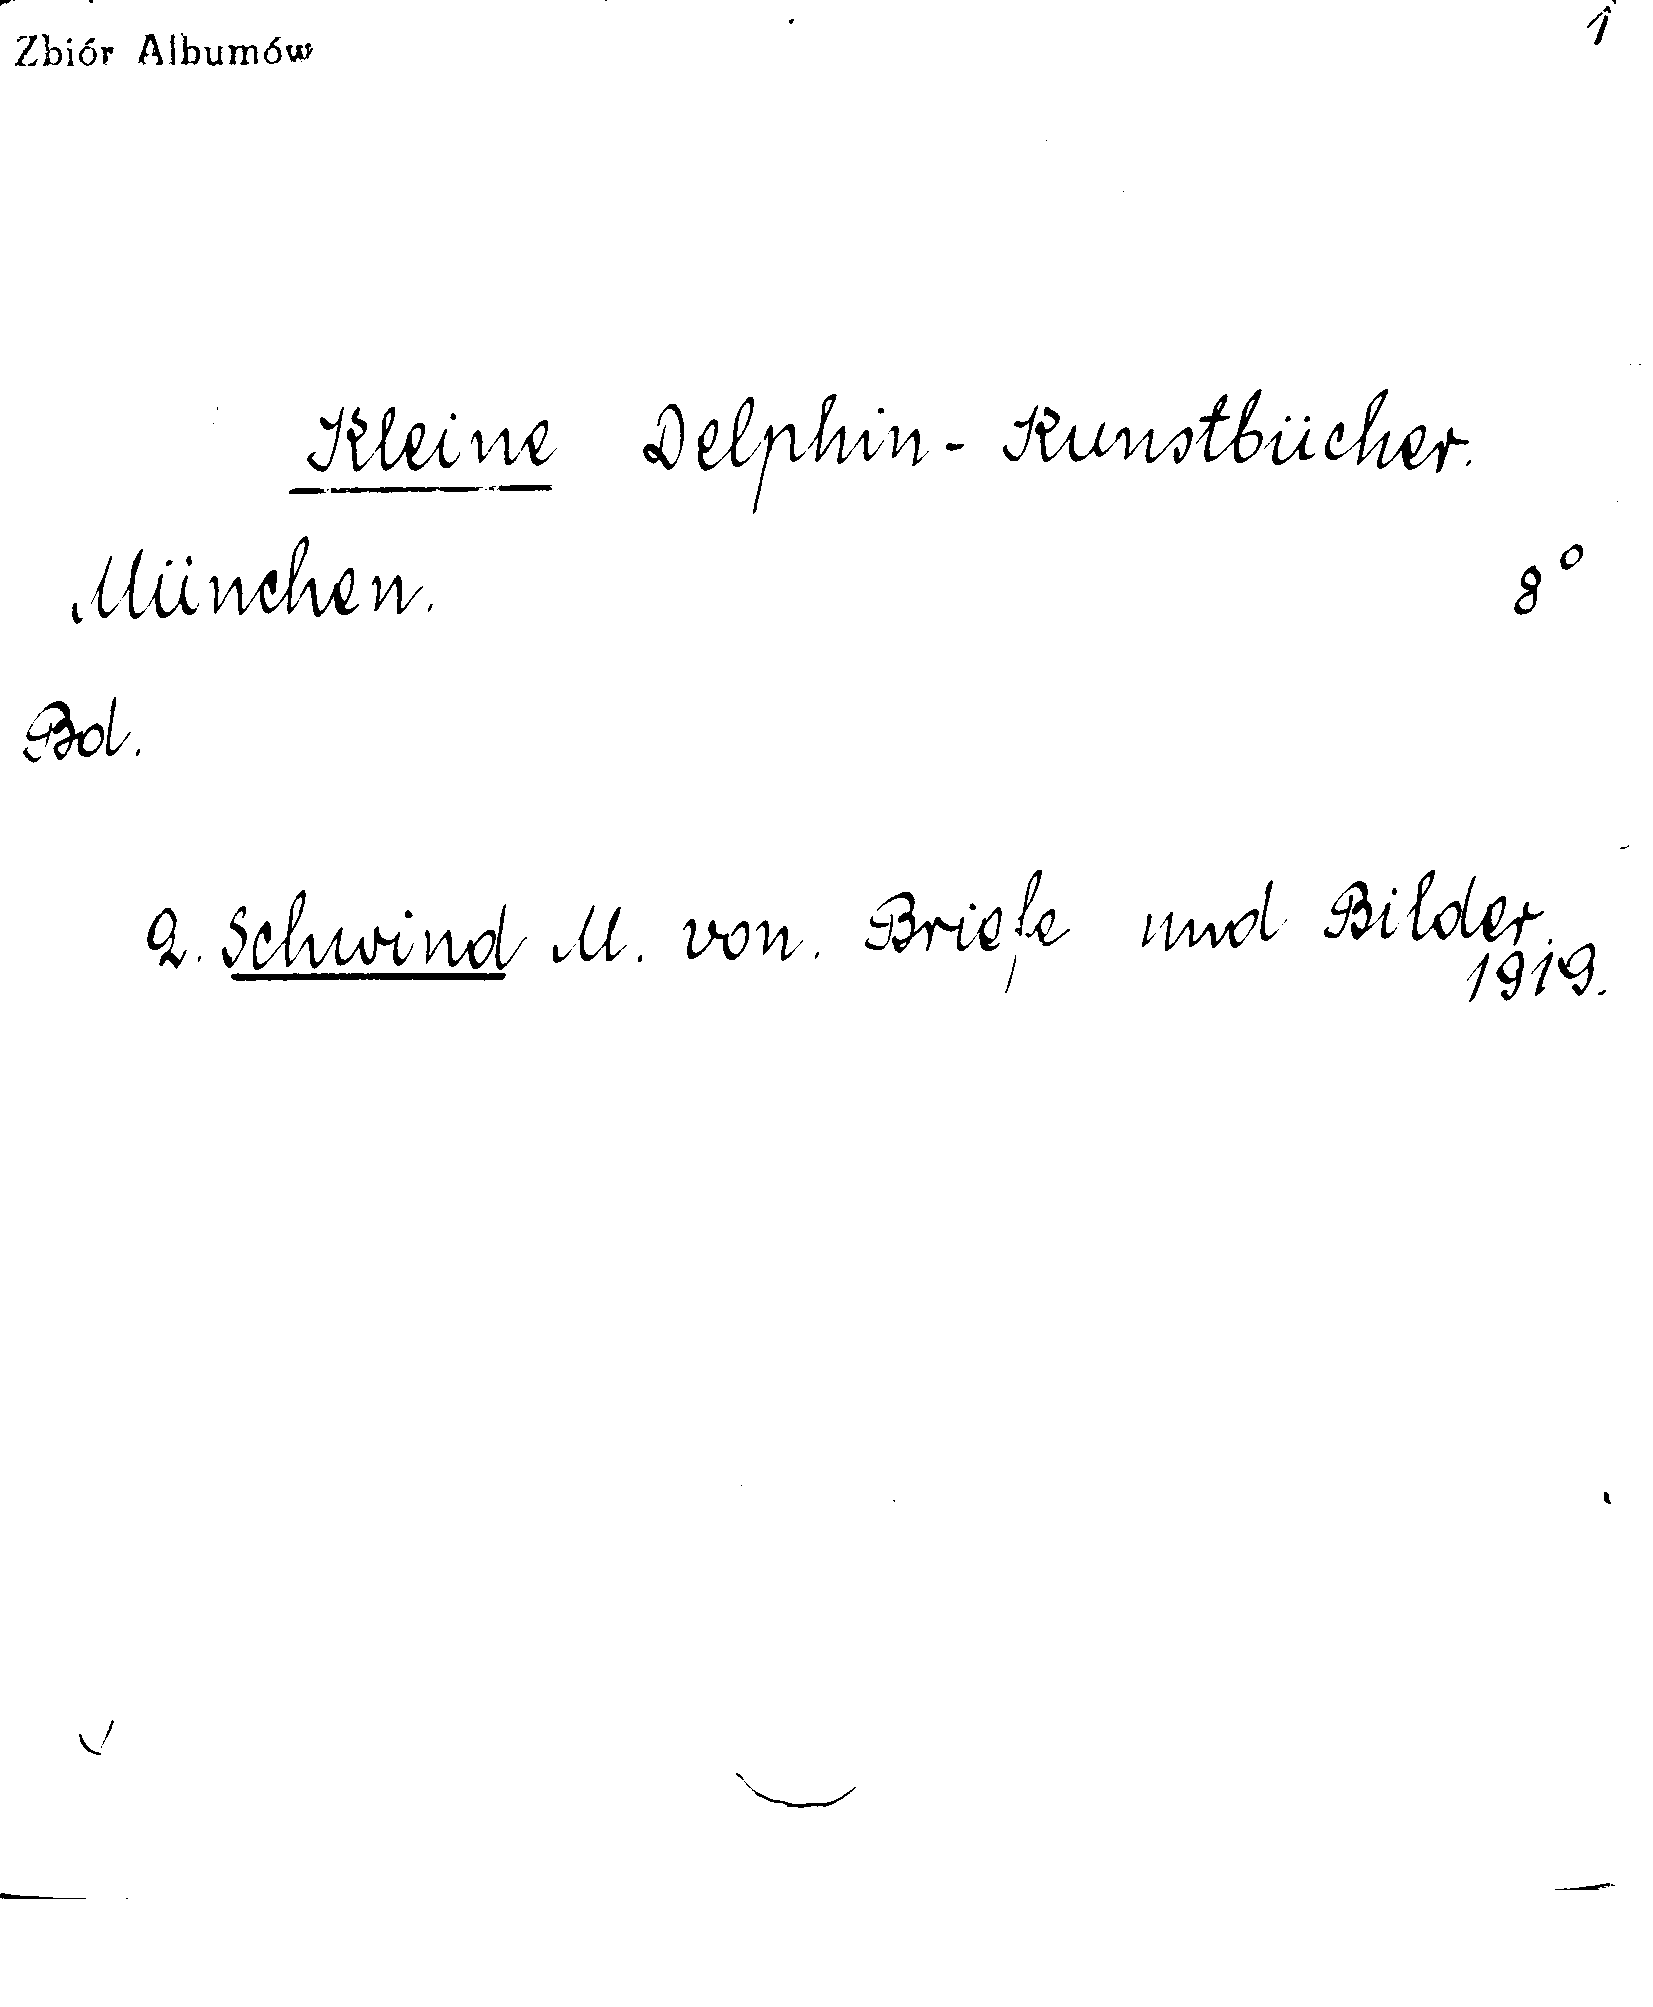 Zbiór Albumów 1
Kleine Delphin - Kunstbücher.
München. 8°
Bd.
2. Schwind M. von. Briefe und Bilder.
1919.